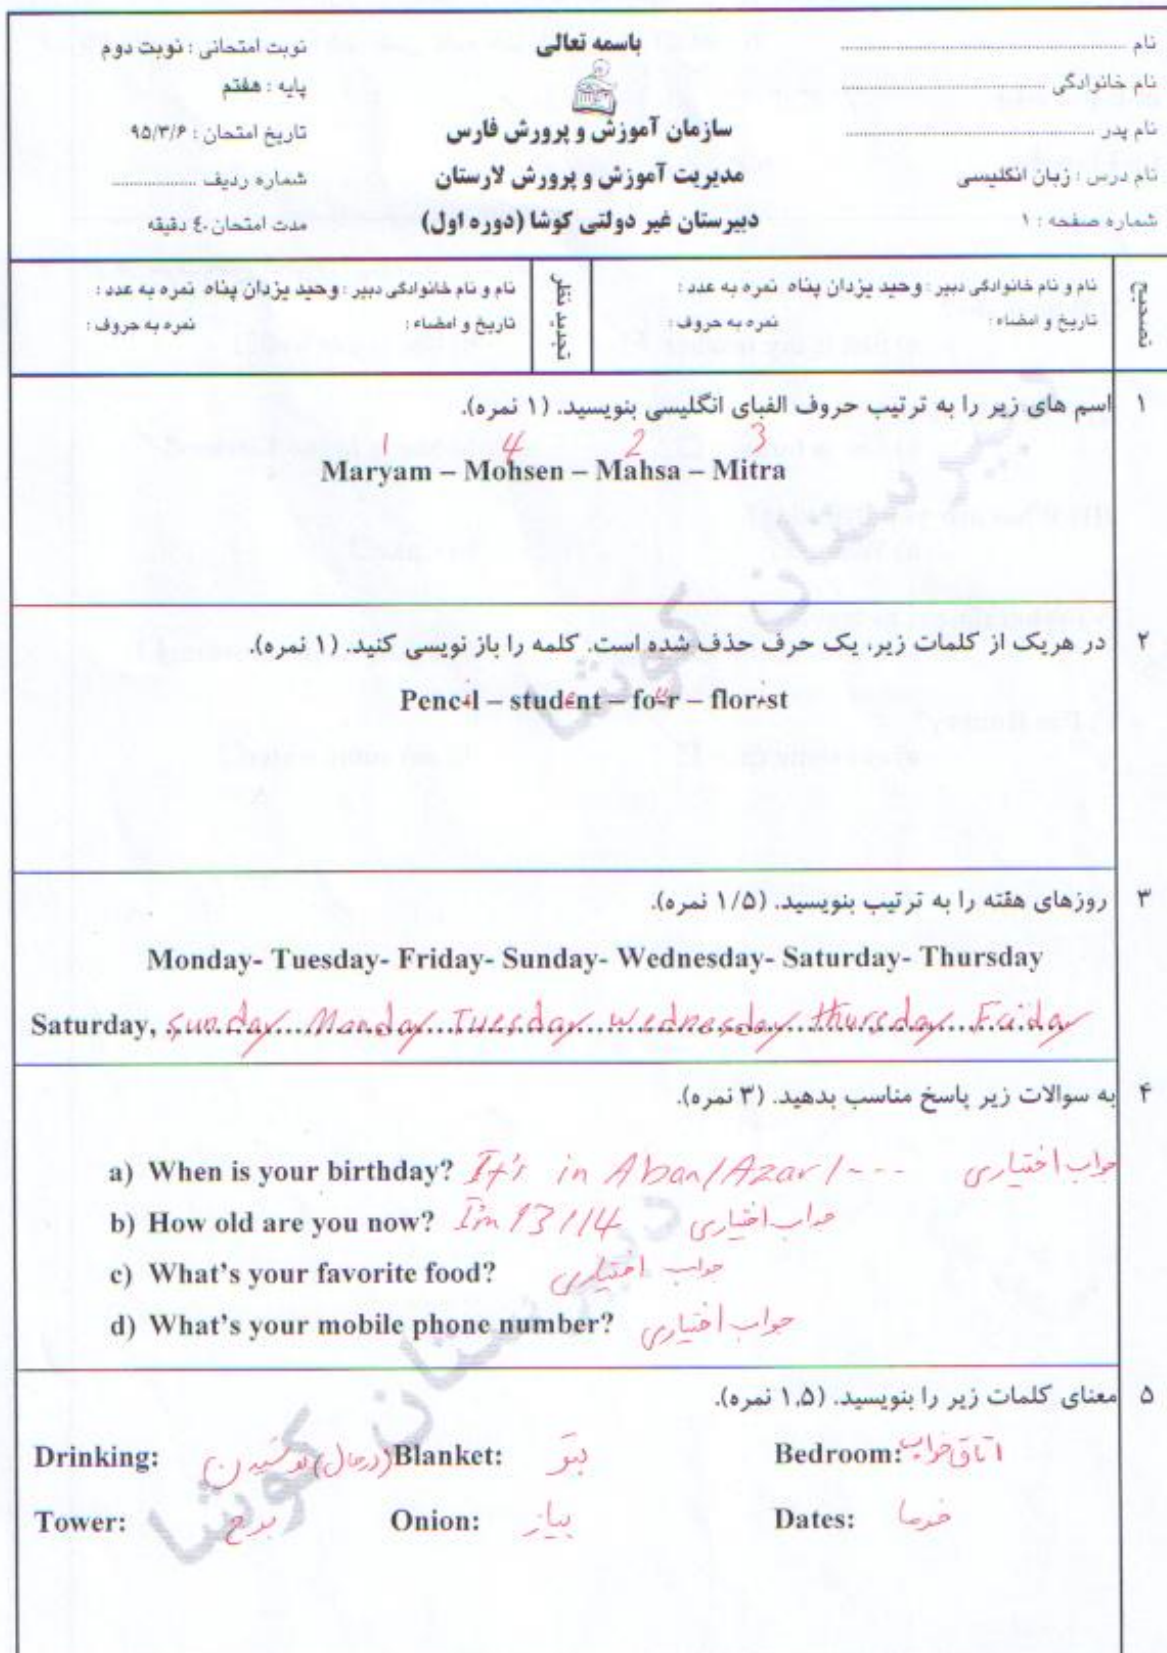 نام ........................
باسمه تعالی
نوبت امتحانی : نوبت دوم
نام خانوادگی ........................
پایه : هفتم
نام پدر ........................
سازمان آموزش و پرورش فارس
تاریخ امتحان : ۹۵/۳/۶
نام درس : زبان انگلیسی
مدیریت آموزش و پرورش لارستان
شماره ردیف ..................
شماره صفحه : ۱
دبیرستان غیر دولتی کوشا (دوره اول)
مدت امتحان ٤٠ دقیقه
تصحیح
نام و نام خانوادگی دبیر : وحید یزدان پناه نمره به عدد :
تاریخ و امضاء : نمره به حروف :
تجدید نظر
نام و نام خانوادگی دبیر : وحید یزدان پناه نمره به عدد :
تاریخ و امضاء : نمره به حروف :
۱ اسم های زیر را به ترتیب حروف الفبای انگلیسی بنویسید. (۱ نمره).
1 4 2 3
Maryam – Mohsen – Mahsa – Mitra
۲ در هریک از کلمات زیر، یک حرف حذف شده است. کلمه را باز نویسی کنید. (۱ نمره).
Pencil – student – four – florist
۳ روزهای هفته را به ترتیب بنویسید. (۱/۵ نمره).
Monday- Tuesday- Friday- Sunday- Wednesday- Saturday- Thursday
Saturday, sunday Monday Tuesday wednesday thursday Friday
۴ به سوالات زیر پاسخ مناسب بدهید. (۳ نمره).
a) When is your birthday? It's in Aban/Azar/--- جواب اختیاری
b) How old are you now? I'm 13/14 جواب اختیاری
c) What's your favorite food? جواب اختیاری
d) What's your mobile phone number? جواب اختیاری
۵ معنای کلمات زیر را بنویسید. (۱,۵ نمره).
Drinking: (درحال) نوشیدن Blanket: پتو Bedroom: اتاق خواب
Tower: برج Onion: پیاز Dates: خرما
دبیرستان کوشا
دبیرستان کوشا